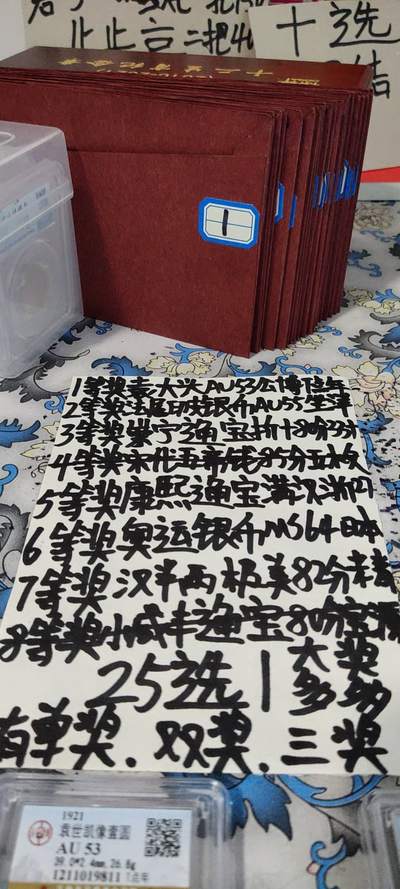 十选
结
止止言二把40
十二生肖纪念券
1
1等奖袁大头AU53公博
2等奖法属印坡银币AU55坐洋
3等奖崇宁通宝折十80分
4等奖宋代五帝钱85分五枚
5等奖康熙通宝满汉浙
6等奖奥运银币MS64日本
7等奖汉半两极美82分
8等奖小咸丰通宝80分宝源
25选1大奖
多多
有单奖.双奖.三奖
1921
袁世凯像壹圆
AU 53
39.0*2.4mm,26.8g
1211019811 1点年